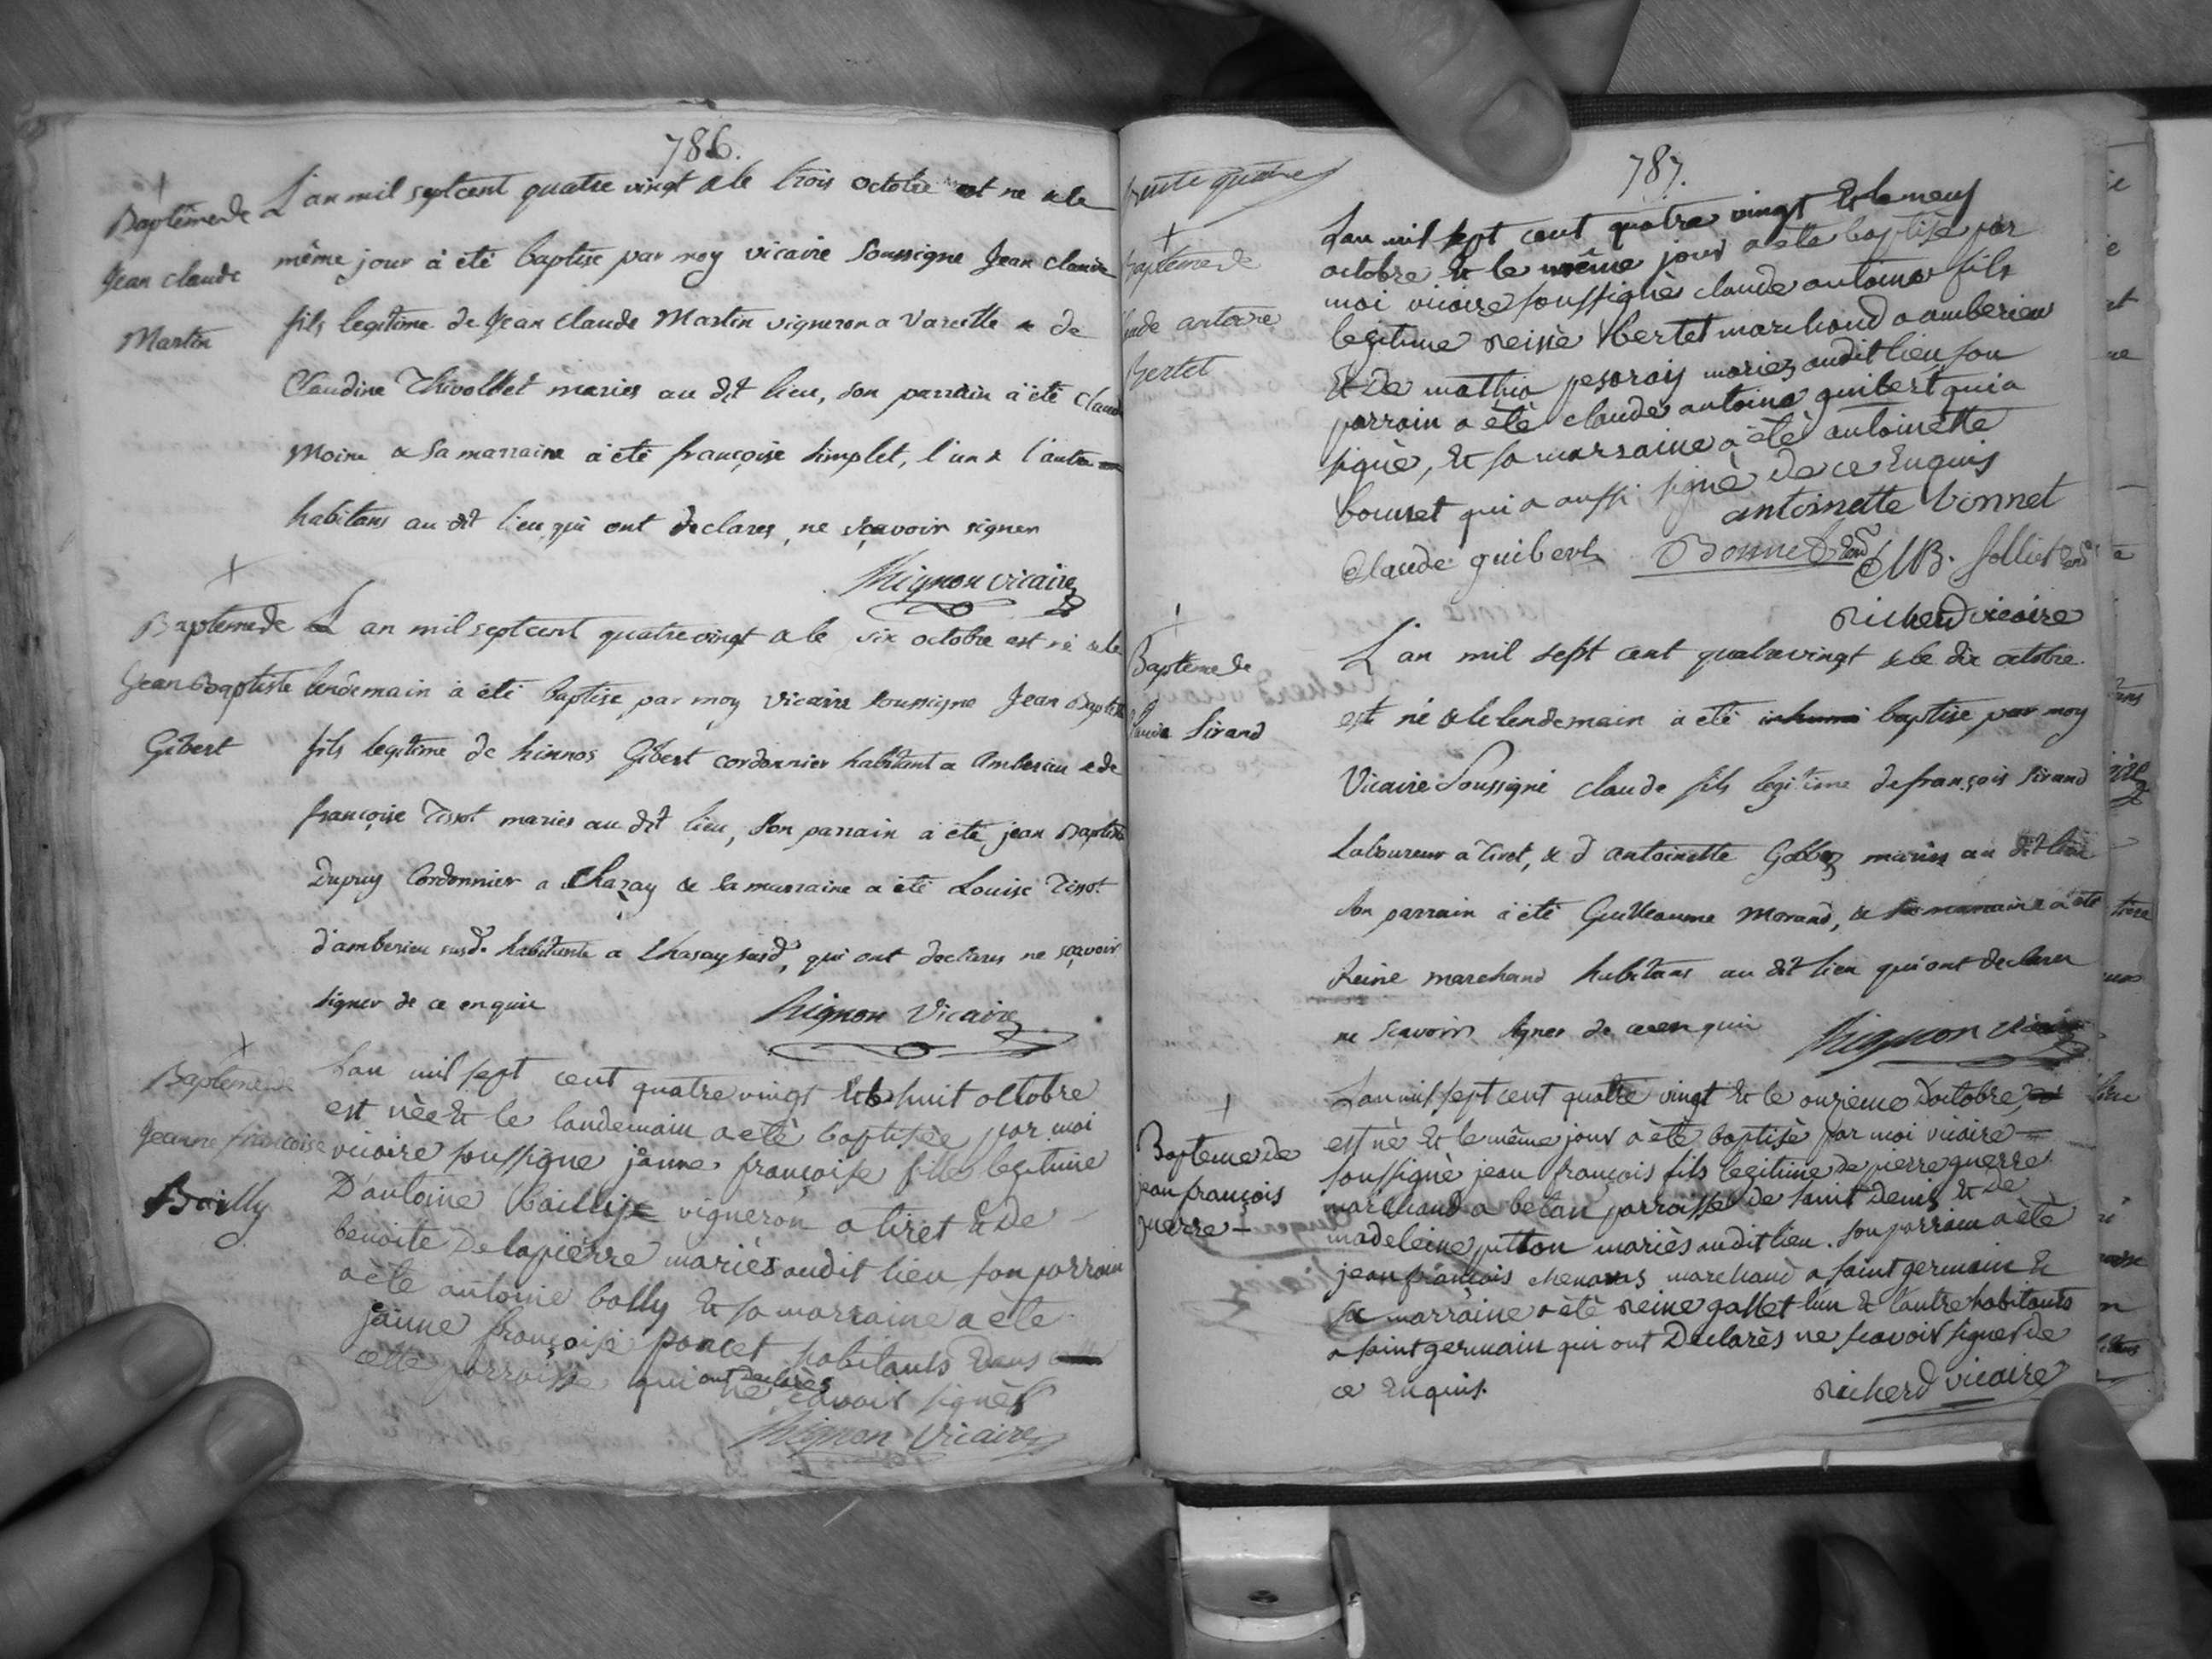 786.
Baptême de
Jean claude
Martin
L'an mil sept cent quatre vingt & le trois octobre est ne & le
même jour à été baptise par moy vicaire soussigne Jean claude
fils legitime de Jean claude Martin vigneron a Vareille & de
Claudine Thivollet maries au dit lieu, son parrain à été Claude
Moine & sa marraine à été françoise simplet, l'un & l'autre
habitans au dit lieu qui ont declares, ne scavoir signer
Mignon vicaire
Baptême de
Jean Baptiste
Gibert
L'an mil sept cent quatre vingt & le six octobre est né & le
lendemain à été baptise par moy vicaire soussigne Jean Baptiste
fils legitime de Gibert cordonnier habitant a Amberieu & de
françoise Tissot maries au dit lieu, son parrain à été jean Baptiste
Dupuy Cordonnier a Chazay & sa marraine a été Louise Tissot
d'amberieu susd. habitante a Chazay susd, qui ont declares ne scavoir
signer de ce enquis
Mignon Vicaire
Baptême de
Jeanne françoise
Bailly
Lan mil sept cent quatre vingt & le huit octobre
est nèe & le landemain a etè baptisèe par moi
vicaire soussigne jànne françoise fille legitime
D'antoine bailly vigneron a tiret & de
benoite Delapierre mariès audit lieu son parrain
a ète antoine bally & sa marraine a ète
jànne françoise poncet habitants dans
cette parroisse qui ont Declarès
ne scavoir signer
Mignon Vicaire
trente quatre
787.
Baptême de
claude antoine
Bertet
Lan mil sept cent quatre vingt & le neuf
octobre & le même jour a ète baptise par
moi vicaire soussignès claude antoine fils
legitime Bertet marchand a amberieu
& de mariez audit lieu son
parrain a ètè claude antoine guibert qui a
signè, & sa marraine a ètè antoinette
bonnet qui a aussi signè de ce Enquis
antoinette bonnet
Claude guibert Bonnet MB. Jolliet
Richerd vicaire
Baptême de
Claude Sirand
L'an mil sept cent quatre vingt & le dix octobre
est né & le lendemain à été baptise par moy
Vicaire Soussigné claude fils legitime de françois sirand
Laboureur a tiret, & d'antoinette maries au dit lieu
son parrain à été Guilleaume Morand, & sa marraine a été
Reine marchand habitans au dit lieu qui ont declares
ne scavoir signer de ce enquis
Mignon Vicaire
Bapteme de
jean françois
guerre
Lan mil sept cent quatre vingt & le onzieme d'octobre,
est nè & le même jour a ètè baptisè par moi vicaire
soussignè jean françois fils legitime de pierre guerre
marchand a betan parroisse de saint Denis & de
madeleine pitton mariès audit lieu. son parrain a ètè
jean françois chenavas marchand a saint germain &
sa marràine a ètè reine gallet l'un & l'autre habitants
a saint germain qui ont Declarès ne scavoir signer de
ce Enquis.
Richerd vicaire